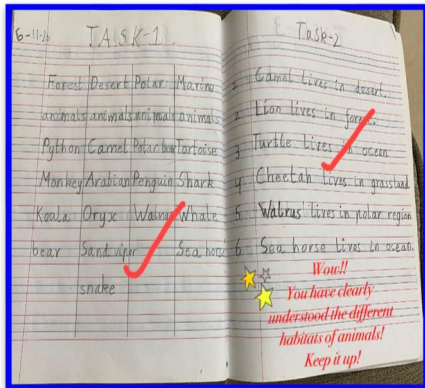 6-11-20
TASK-1.
Forest Desert Polar Marine
animals animals animals animals
Python Camel Polar bear Tortoise
Monkey Arabian Penguin Shark
Koala Oryx Walrus Whale
bear Sand viper Sea horse
snake
Task-2
1 Camel lives in desert.
2 Lion lives in forest.
3 Turtle lives in ocean
4 Cheetah lives in grassland
5 Walrus lives in polar region
6. Sea horse lives in ocean.
Wow!!
You have clearly
understood the different
habitats of animals!
Keep it up!